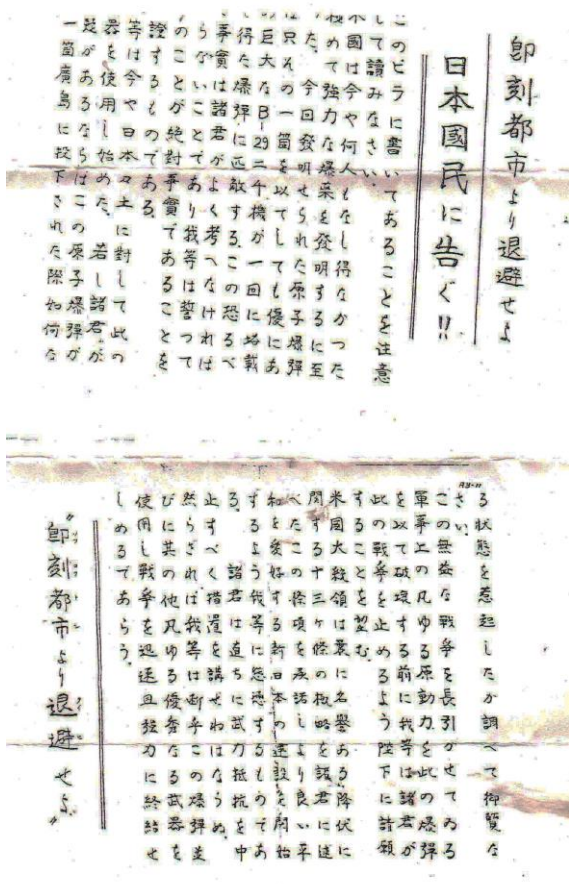 卽刻都市より退避せよ
日本國民に告ぐ!!
このビラに書いてあることを注意
して讀みなさい。
米國は今や何人もなし得なかつた
極めて強力な爆薬を發明するに至
た。今回發明せられた原子爆彈
は只その一箇を以てしても優にあ
の巨大なB-29二千機が一回に搭載
し得た爆彈に匹敵する。この恐るべ
事實は諸君がよく考へなければ
らないことであり我等は誓つて
のことが絶對事實であることを
證するものである。
等は今や日本々土に對して此の
器を使用し始めた。若し諸君が
疑があるならばこの原子爆彈が
一箇廣島に投下された際如何な
AB-11
る状態を惹起したか調べて御覽な
さい。
この無益な戰爭を長引かせてゐる
軍事上の凡ゆる原動力を此の爆彈
を以て破壊する前に我等は諸君が
此の戰爭を止めるよう陛下に請願
することを望む。
米國大統領は曩に名譽ある降伏に
關する十三ヶ條の概略を諸君に述
べたこの條項を承諾しより良い平
和を愛好する新日本の建設を開始
するよう我等は慫慂するものであ
る。 諸君は直ちに武力抵抗を中
止すべく措置を講ぜねばならぬ。
然らざれば我等は斷乎この爆彈並
びに其の他凡ゆる優秀なる武器を
使用し戰爭を迅速且強力に終結せ
しめるであらう。
“卽刻都市より退避せよ”